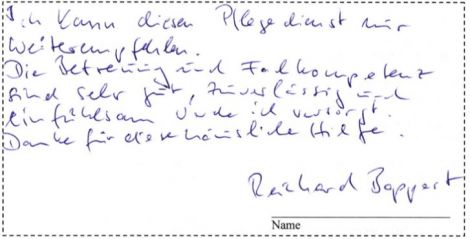 Ich kann diesen Pflegedienst nur
weiterempfehlen.
Die Betreuung und Fachkompetenz
sind sehr gut, zuverlässig und
einfühlsam wurde ich versorgt.
Danke für diese häusliche Hilfe.
Reichard Bappert
Name